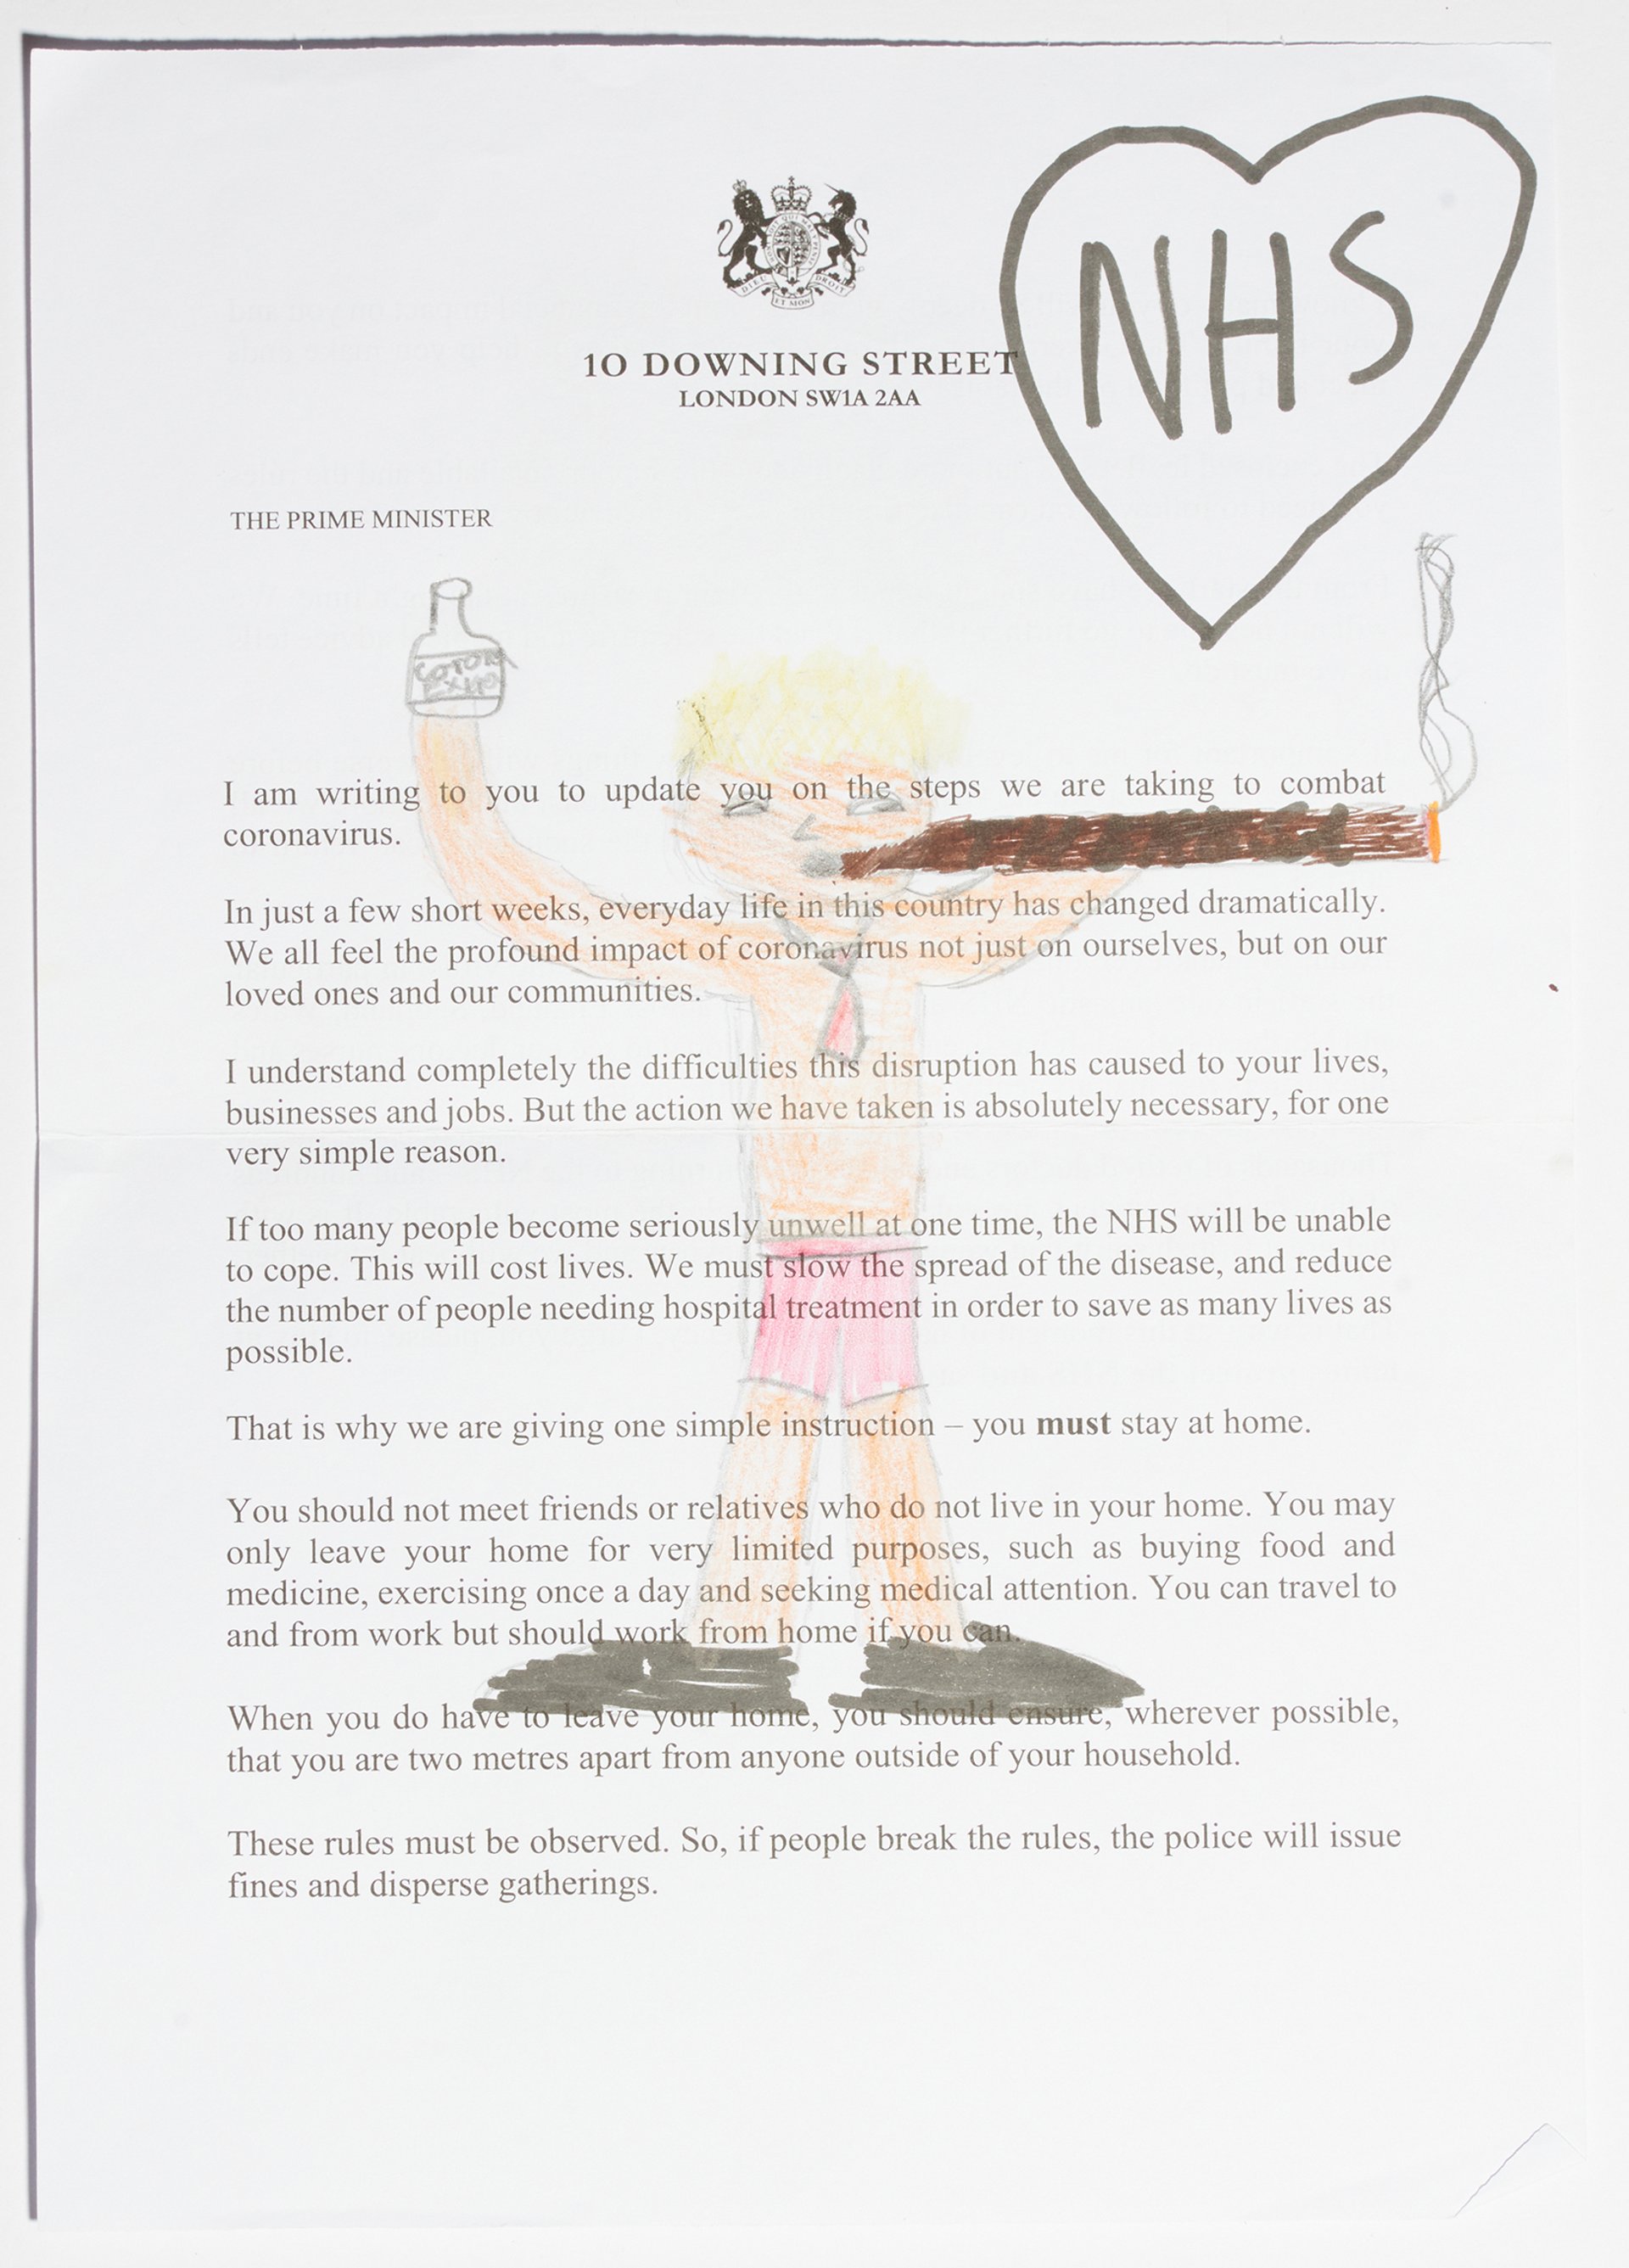 NHS
DIEU ET MON DROIT
10 DOWNING STREET
LONDON SW1A 2AA
THE PRIME MINISTER
I am writing to you to update you on the steps we are taking to combat
coronavirus.
In just a few short weeks, everyday life in this country has changed dramatically.
We all feel the profound impact of coronavirus not just on ourselves, but on our
loved ones and our communities.
I understand completely the difficulties this disruption has caused to your lives,
businesses and jobs. But the action we have taken is absolutely necessary, for one
very simple reason.
If too many people become seriously unwell at one time, the NHS will be unable
to cope. This will cost lives. We must slow the spread of the disease, and reduce
the number of people needing hospital treatment in order to save as many lives as
possible.
That is why we are giving one simple instruction – you must stay at home.
You should not meet friends or relatives who do not live in your home. You may
only leave your home for very limited purposes, such as buying food and
medicine, exercising once a day and seeking medical attention. You can travel to
and from work but should work from home if you can.
When you do have to leave your home, you should ensure, wherever possible,
that you are two metres apart from anyone outside of your household.
These rules must be observed. So, if people break the rules, the police will issue
fines and disperse gatherings.